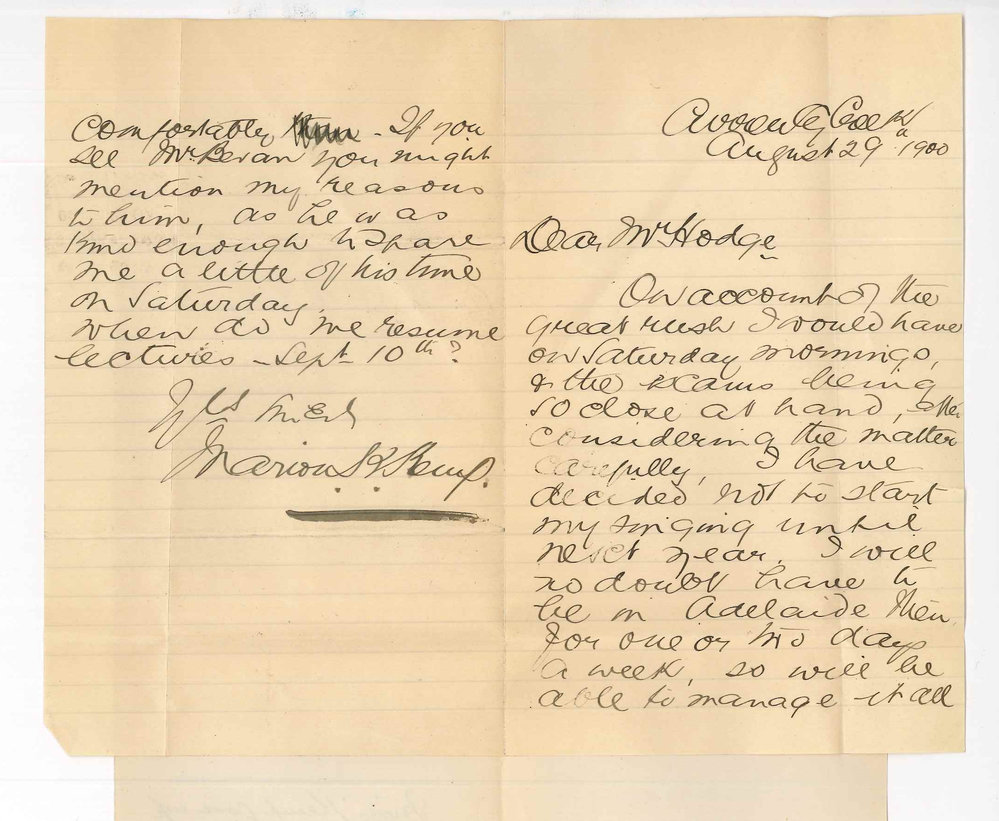 August 29th 1900
Dear Mr Hodge
On account of the
great rush I would have
on Saturday mornings,
& the exams being
so close at hand, after
considering the matter
carefully, I have
decided not to start
my singing until
next year. I will
no doubt have to
be in Adelaide then
for one or two days
a week, so will be
able to manage it all
comfortably - If you
see Mr Bevan you might
mention my reasons
to him, as he was
kind enough to spare
me a little of his time
on Saturday.
When do we resume
lectures - Sept 10th?
Marion